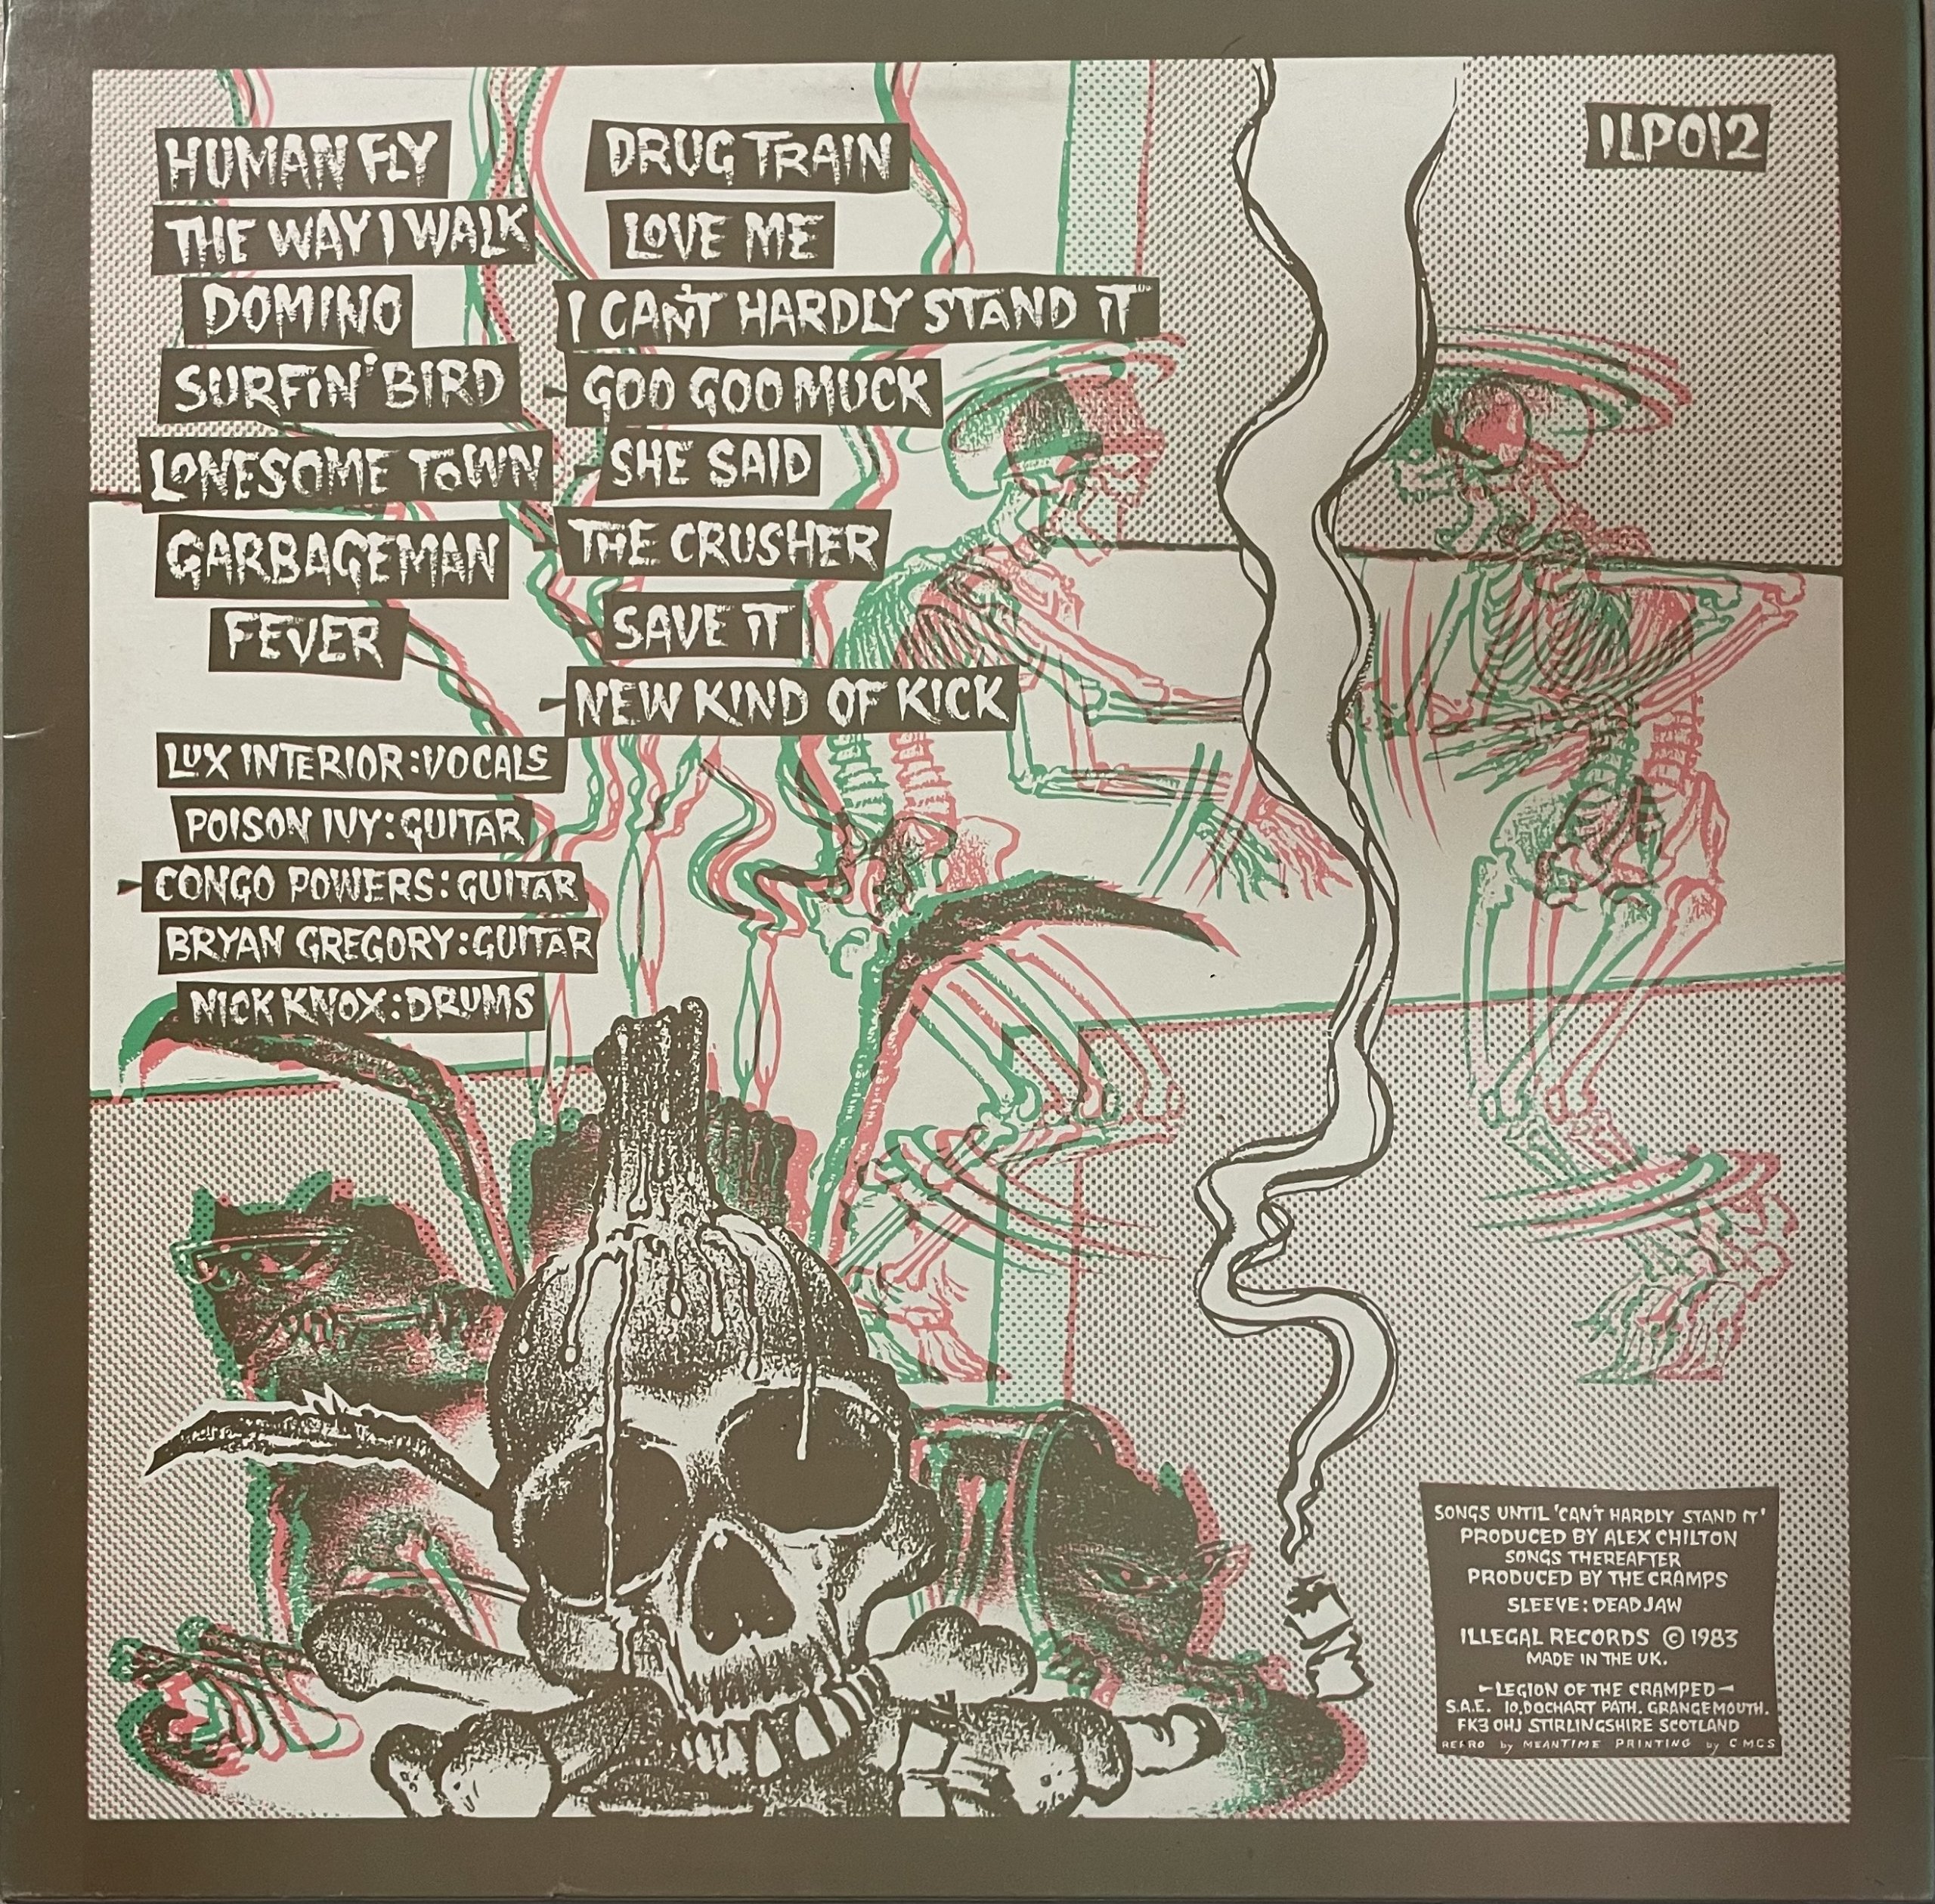 HUMAN FLY
THE WAY I WALK
DOMINO
SURFIN' BIRD
LONESOME TOWN
GARBAGEMAN
FEVER
DRUG TRAIN
LOVE ME
I CAN'T HARDLY STAND IT
GOO GOO MUCK
SHE SAID
THE CRUSHER
SAVE IT
NEW KIND OF KICK
ILP012
LUX INTERIOR:VOCALS
POISON IVY:GUITAR
CONGO POWERS:GUITAR
BRYAN GREGORY:GUITAR
NICK KNOX:DRUMS
SONGS UNTIL 'CAN'T HARDLY STAND IT'
PRODUCED BY ALEX CHILTON
SONGS THEREAFTER
PRODUCED BY THE CRAMPS
SLEEVE: DEAD JAW
ILLEGAL RECORDS © 1983
MADE IN THE UK.
-LEGION OF THE CRAMPED-
S.A.E. 10, DOCHART PATH. GRANGEMOUTH.
FK3 OHJ STIRLINGSHIRE SCOTLAND
by MEANTIME PRINTING by CMCS